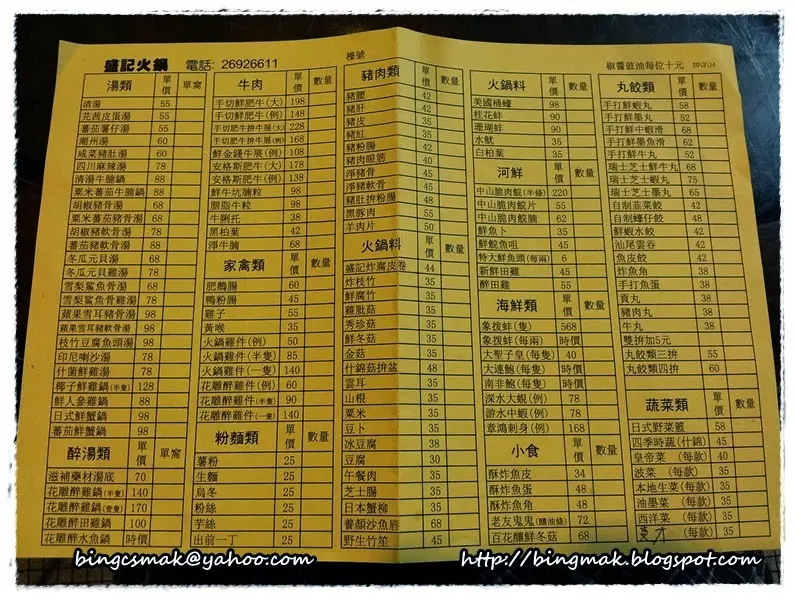 盛記火鍋 電話: 26926611 檯號 椒醬豉油每位十元 2013/14
湯類 單價 單窩
清湯 55
芫茜皮蛋湯 55
蕃茄薯仔湯 55
潮州湯 60
咸菜豬肚湯 60
四川麻辣湯 78
清湯牛腩鍋 88
粟米蕃茄牛腩鍋 88
胡椒豬骨湯 68
粟米蕃茄豬骨湯 68
胡椒豬軟骨湯 78
蕃茄豬軟骨湯 88
冬瓜元貝湯 68
冬瓜元貝雞湯 78
雪梨鯊魚骨湯 68
雪梨鯊魚骨雞湯 78
蘋果雪耳豬骨湯 98
蘋果雪耳豬軟骨湯 98
枝竹豆腐魚頭湯 98
印尼喇沙湯 78
什菌鮮雞湯 78
椰子鮮雞鍋(半隻) 128
鮮人參雞鍋 148
日式鮮蟹鍋 98
蕃茄鮮蟹鍋 98
醉湯類 單價 單窩
滋補藥材湯底 70
花雕醉雞鍋(半隻) 140
花雕醉雞鍋(壹隻) 170
花雕醉田雞鍋 100
花雕醉水魚鍋 時價
牛肉 單價 數量
手切鮮肥牛(大) 198
手切鮮肥牛(例) 148
手切肥牛拚牛展(大) 228
手切肥牛拚牛展(例) 168
鮮金錢牛展(例) 108
安格斯肥牛(大) 178
安格斯肥牛(例) 138
鮮牛坑腩粒 98
胭脂牛粒 98
牛脷托 38
黑柏葉 42
淨牛腩 68
家禽類 單價 數量
肥鵝腸 60
鴨粉腸 45
雞子 55
黃喉 35
火鍋雞件(例) 50
火鍋雞件(半隻) 85
火鍋雞件(一隻) 140
花雕醉雞件(例) 60
花雕醉雞件(半隻) 90
花雕醉雞件(一隻) 140
粉麵類 單價 數量
薯粉 25
生麵 25
烏冬 25
粉絲 25
芋絲 25
出前一丁 25
豬肉類 單價 數量
豬腰 42
豬肝 42
豬皮 35
豬紅 35
豬粉腸 42
豬肉眼筋 40
淨豬骨 45
淨豬軟骨 48
豬肚拚粉腸 48
黑豚肉 55
羊肉片 50
火鍋料 單價 數量
盛記炸腐皮卷 44
炸枝竹 35
鮮腐竹 35
雞肶菇 35
秀珍菇 35
鮮冬菇 35
金菇 35
什錦菇拚盆 48
雲耳 35
山根 35
粟米 35
豆卜 35
冰豆腐 38
豆腐 30
午餐肉 35
芝士腸 35
日本蟹柳 35
養顏沙魚唇 68
野生竹笙 45
火鍋料 單價 數量
美國桶蠔 98
桂花蚌 90
珊瑚蚌 90
水魷 35
白柏葉 35
河鮮 單價 數量
中山脆肉皖(半條) 220
中山脆肉皖片 55
中山脆肉皖腩 62
鮮魚卜 55
鮮鯇魚咀 45
特大鮮魚頭(每兩) 6
新鮮田雞 45
醉田雞 55
海鮮類 單價 數量
象拔蚌(隻) 568
象拔蚌(每兩) 時價
大聖子皇(每隻) 40
大連鮑(每隻) 時價
南非鮑(每隻) 時價
深水大蜆(例) 78
游水中蝦(例) 78
章鴻刺身(例) 168
小食 單價 數量
酥炸魚皮 34
酥炸魚蛋 48
酥炸魚角 48
老友鬼鬼(釀油條) 72
百花釀鮮冬菇 68
丸餃類 單價 數量
手打鮮蝦丸 58
手打鮮墨丸 52
手打鮮中蝦滑 68
手打鮮墨魚滑 62
手打鮮牛丸 52
瑞士芝士鮮牛丸 68
瑞士芝士蝦丸 75
瑞士芝士墨丸 65
自制韮菜餃 42
自制蠔仔餃 48
鮮蝦水餃 42
汕尾雲吞 42
魚皮餃 42
炸魚角 38
手打魚蛋 38
貢丸 38
豬肉丸 38
牛丸 38
雙拚加5元
丸餃類三拚 55
丸餃類四拚 60
蔬菜類 單價 數量
日式野菜籃 58
四季時蔬(什錦) 45
皇帝菜 (每款) 40
菠菜 (每款) 35
本地生菜(每款) 35
油墨菜 (每款) 35
西洋菜 (每款) 35
(每款) 35
bingcsmak@yahoo.com http://bingmak.blogspot.com